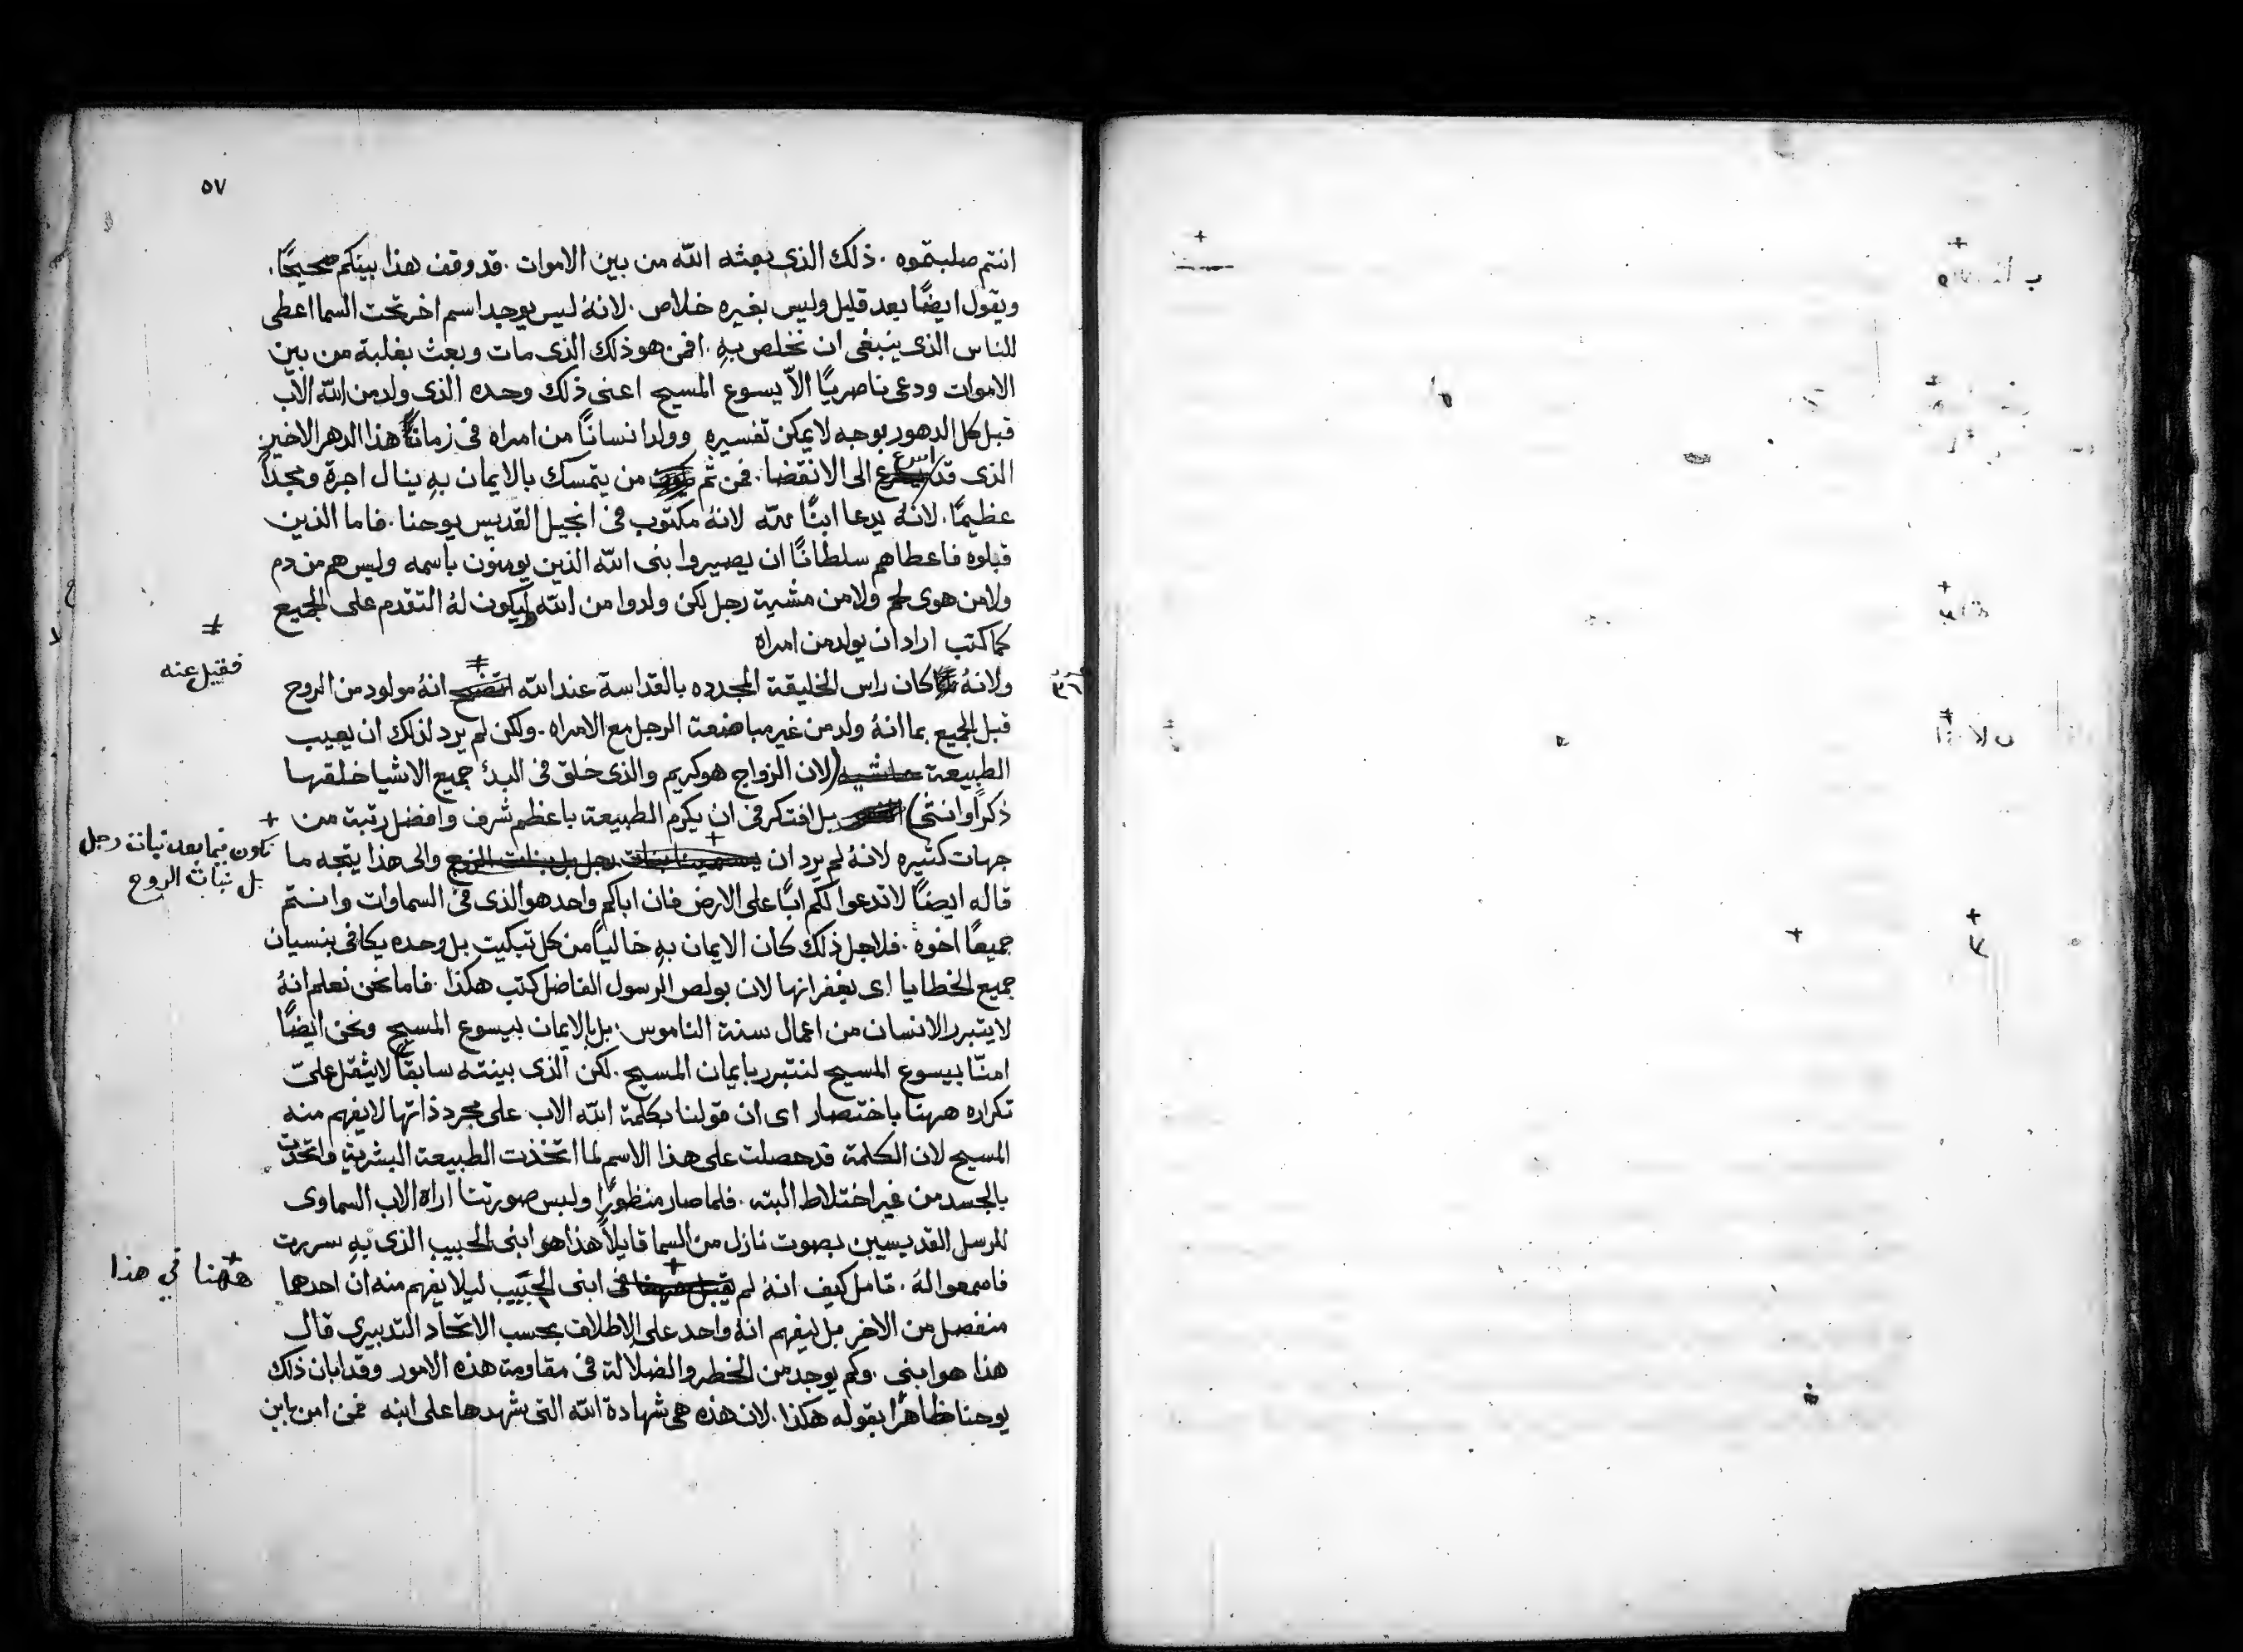 ٥٧
انتم صلبتموه . ذلك الذى بعثه الله من بين الاموات . قد وقف هذا بينكم صحيحًا .
ويقول ايضًا بعد قليل وليس بغيره خلاص . لانهُ ليس يوجد اسم اخر تحت السما اعطى
للناس الذى ينبغى ان نخلص بهِ . افمن هو ذلك الذى مات وبعث بغلبة من بين
الاموات ودعى ناصريًا الّا يسوع المسيح اعنى ذلك وحده الذى ولد من الله الاب
قبل كل الدهور بوجه لا يمكن تفسيره وولد انسانًا من امراه فى زمان هذا الدهر الاخير
الذى قد اسرع الى الانقضا . فمن ثم من يتمسك بالايمان بهِ ينال اجرة ومجداً
عظيمًا . لانهُ يدعا ابنًا لله لانهُ مكتوب فى انجيل القديس يوحنا . فاما الذين
قبلوه فاعطاهم سلطانًا ان يصيروا بنى الله الذين يومنون باسمه وليس هم من دم
ولا من هوى لحم ولا من مشية رجل لكن ولدوا من الله ليكون لهُ التقدم على الجميع
كما كتب اراد ان يولد من امراه
ولانهُ كان راس الخليقة المجدده بالقداسة عند الله اتضح انهُ مولود من الروح
فقيل عنه
قبل الجميع بما انهُ ولد من غير مباضعة الرجل مع الامراه . ولكن لم يرد لذلك ان يعيب
الطبيعة حاشيه (لان الزواج هو كريم والذى خلق فى البدء جميع الاشيا خلقها
ذكرًا وانثى) بل افتكر فى ان يكرم الطبيعة باعظم شرف وافضل رتبة من
جهات كثيره لانهُ لم يرد ان يسمينا بنات رجل بل بنات الروح والى هذا يتجه ما
نكون فيما بعد نبات رجل
بل نبات الروح
قاله ايضًا لا تدعوا لكم ابًا على الارض فان اباكم واحد هو الذى فى السماوات وانتم
جميعًا اخوة . فلاجل ذلك كان الايمان بهِ خاليًا من كل تبكيت بل وحده يكافى بنسيان
جميع الخطايا اى بغفرانها لان بولص الرسول الفاضل كتب هكذا . فاما نحن نعلم انهُ
لا يتبرر الانسان من اعمال سنة الناموس . بل بالايمان بيسوع المسيح ونحن ايضًا
امنّا بيسوع المسيح لنتبرر بايمان المسيح . لكن الذى بينته سابقًا لا يثقل علىّ
تكراره ههنا باختصار اى ان قولنا بكلمة الله الاب على مجرد ذاتها لا يفهم منه
المسيح لان الكلمة قد حصلت على هذا الاسم لما اتخذت الطبيعة البشرية واتحدت
بالجسد من غير اختلاط البته . فلما صار منظورًا ولبس صورتنا اراه الاب السماوى
للرسل القديسين بصوت نازل من السما قايلاً هذا هو ابنى الحبيب الذى بهِ سررت
فاسمعوا لهُ . تامل كيف انهُ لم يقبل ههنا فى ابنى الحبيب ليلا يفهم منه ان احدها
ههنا في هذا
منفصل من الاخر بل ليفهم انهُ واحد على الاطلاق بحسب الاتحاد التدبيرى قال
هذا هو ابنى . وكم يوجد من الخطر والضلالة فى مقاومة هذه الامور وقد ابان ذلك
يوحنا ظاهرًا بقوله هكذا . لان هذه هى شهادة الله التى شهدها على ابنه فمن امن بابن